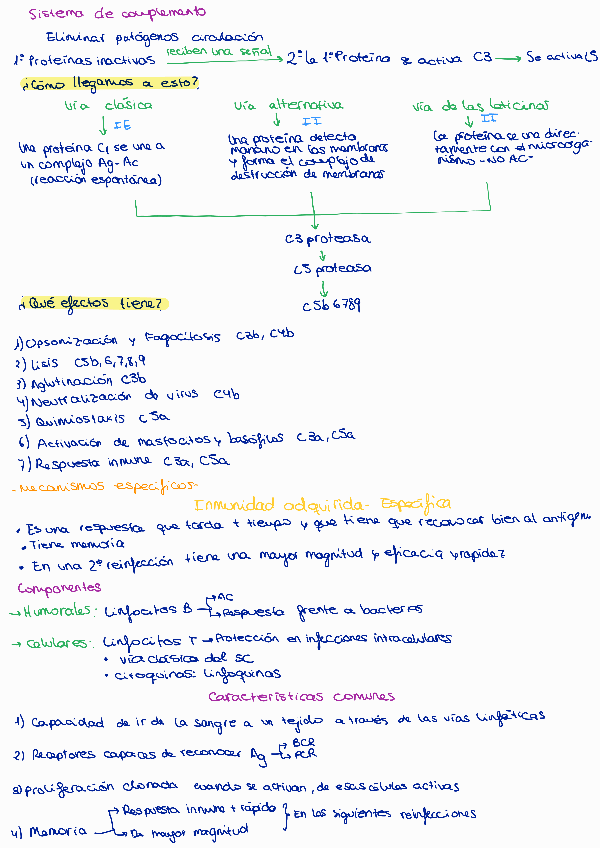 Sistema de complemento
Eliminar patógenos circulación
1º Proteínas inactivas reciben una señal 2º La 1ª Proteína se activa C3 → Se activa C5
¿Cómo llegamos a esto?
Vía clásica Vía alternativa Vía de las lectinas
IE II II
Una proteína C1 se une a un complejo Ag-Ac (reacción espontánea)
Una proteína detecta manano en las membranas y forma el complejo de destrucción de membranas
La proteína se une directamente con el microorganismo - NO AC-
C3 proteasa
C5 proteasa
C5b6789
¿Qué efectos tiene?
1) Opsonización y Fagocitosis C3b, C4b
2) Lisis C5b,6,7,8,9
3) Aglutinación C3b
4) Neutralización de virus C4b
5) Quimiotaxis C5a
6) Activación de mastocitos y basófilos C3a, C5a
7) Respuesta inmune C3a, C5a
- Mecanismos específicos-
Inmunidad adquirida- Específica
• Es una respuesta que tarda + tiempo y que tiene que reconocer bien al antígeno
• Tiene memoria
• En una 2ª reinfección tiene una mayor magnitud y eficacia y rapidez
Componentes
→ Humorales: Linfocitos B → AC
→ Respuesta frente a bacterias
→ Celulares: Linfocitos T → Protección en infecciones intracelulares
• vía clásica del SC
• citoquinas: linfoquinas
Características comunes
1) Capacidad de ir de la sangre a un tejido a través de las vías linfáticas
2) Receptores capaces de reconocer Ag → BCR
→ PCR
3) Proliferación clonada cuando se activan, de esas células activas
4) Memoria → Respuesta inmune + rápido
→ De mayor magnitud } En las siguientes reinfecciones